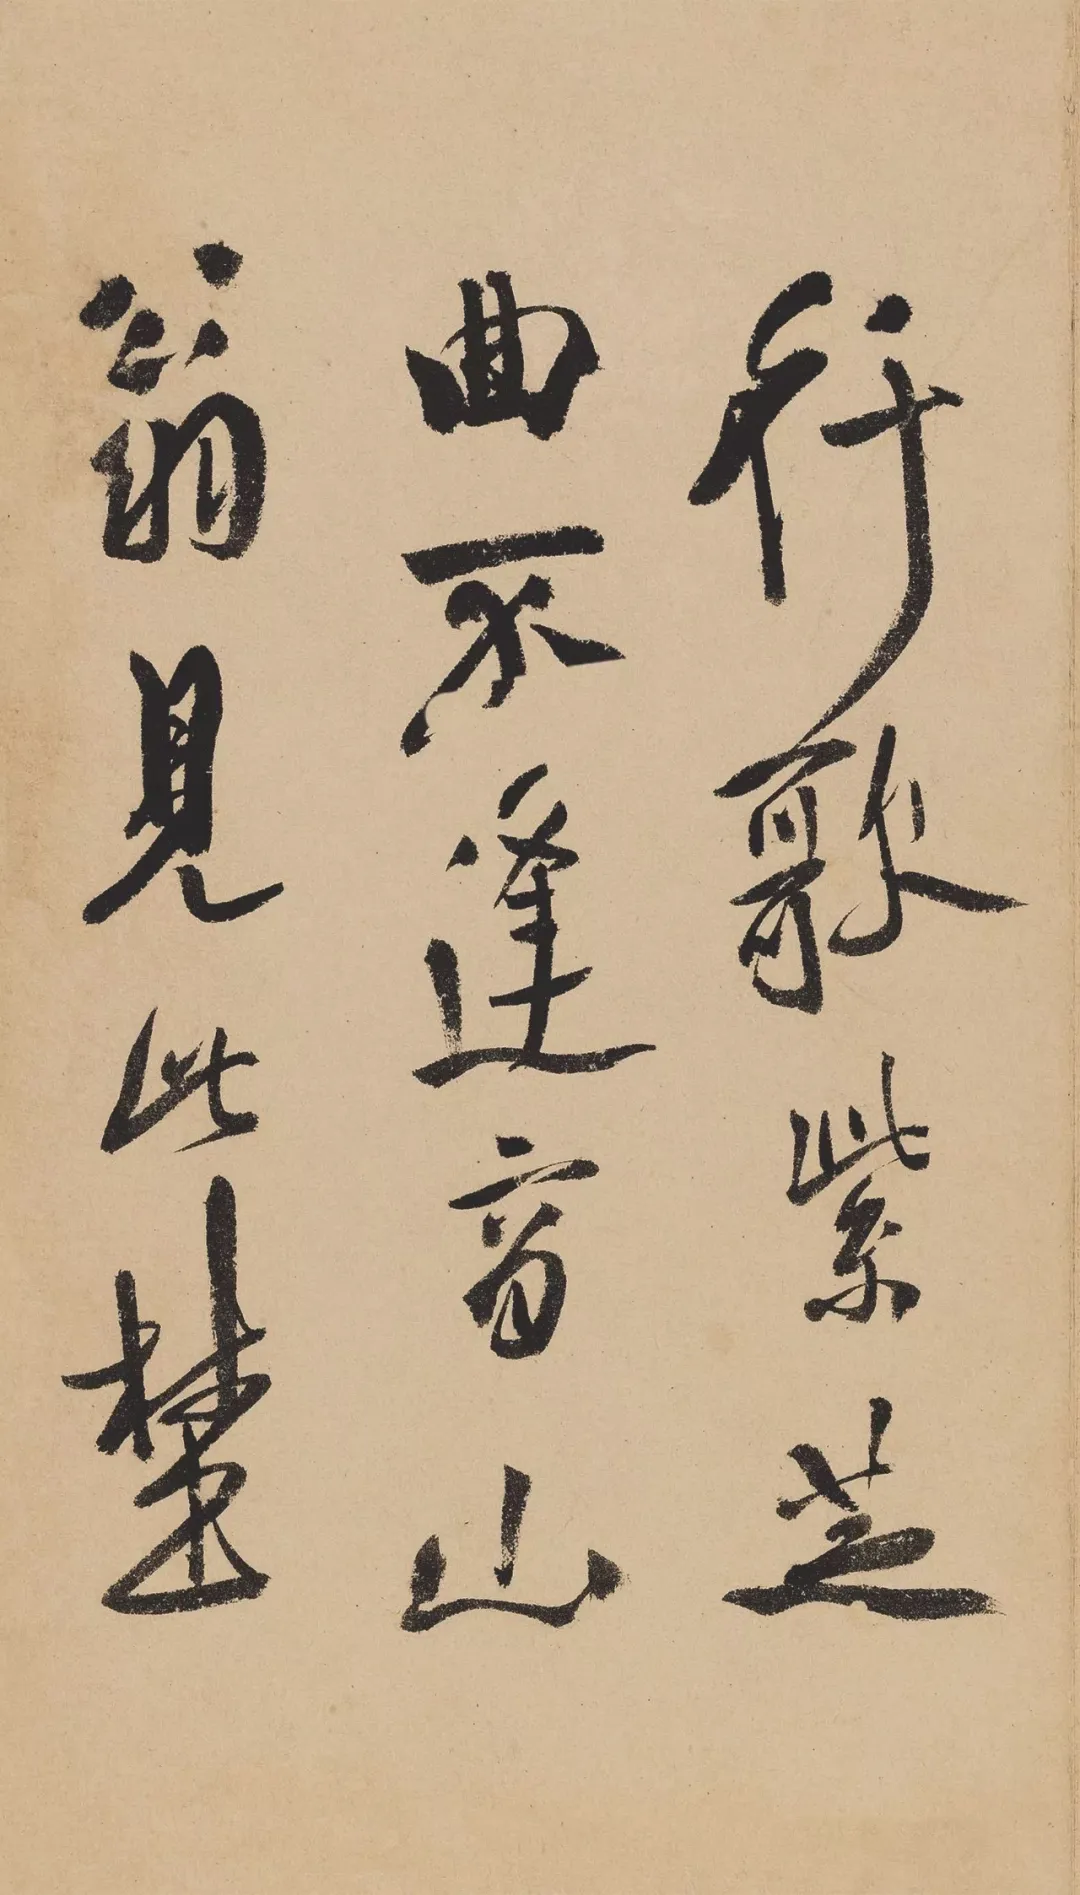 行歌紫芝
曲不逢商山
翁見此壄